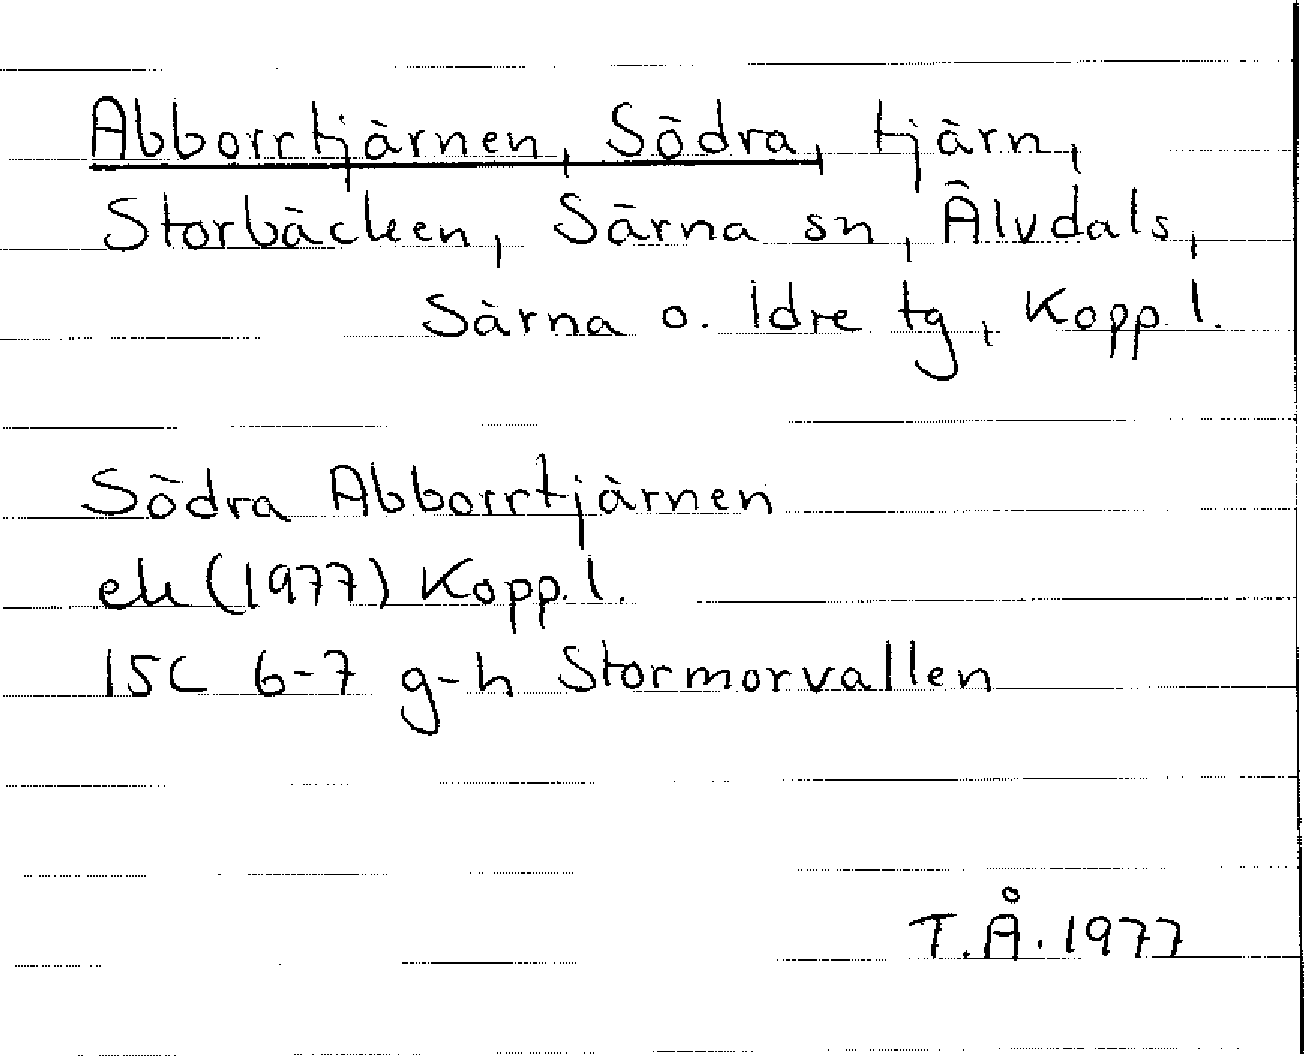 Abborrtjärnen, Södra, tjärn,
Storbäcken, Särna sn, Älvdals,
Särna o. Idre tg, Kopp. l.
Södra Abborrtjärnen
ek (1977) Kopp. l.
15C 6-7 g-h Stormorvallen
T.Å. 1977